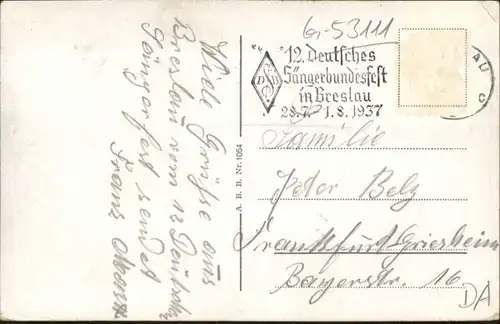 Viele Grüße aus
Breslau vom 12 Deutschen
Sängerfest sendet
Franz
A. B. B. Nr. 1054
br-53111
12. Deutsches
Sängerbundesfest
in Breslau
28.7.-1.8.1937
D S B
AU
Familie
Peter Belz
Frankfurt Griesheim
Bayerstr. 16.
DA